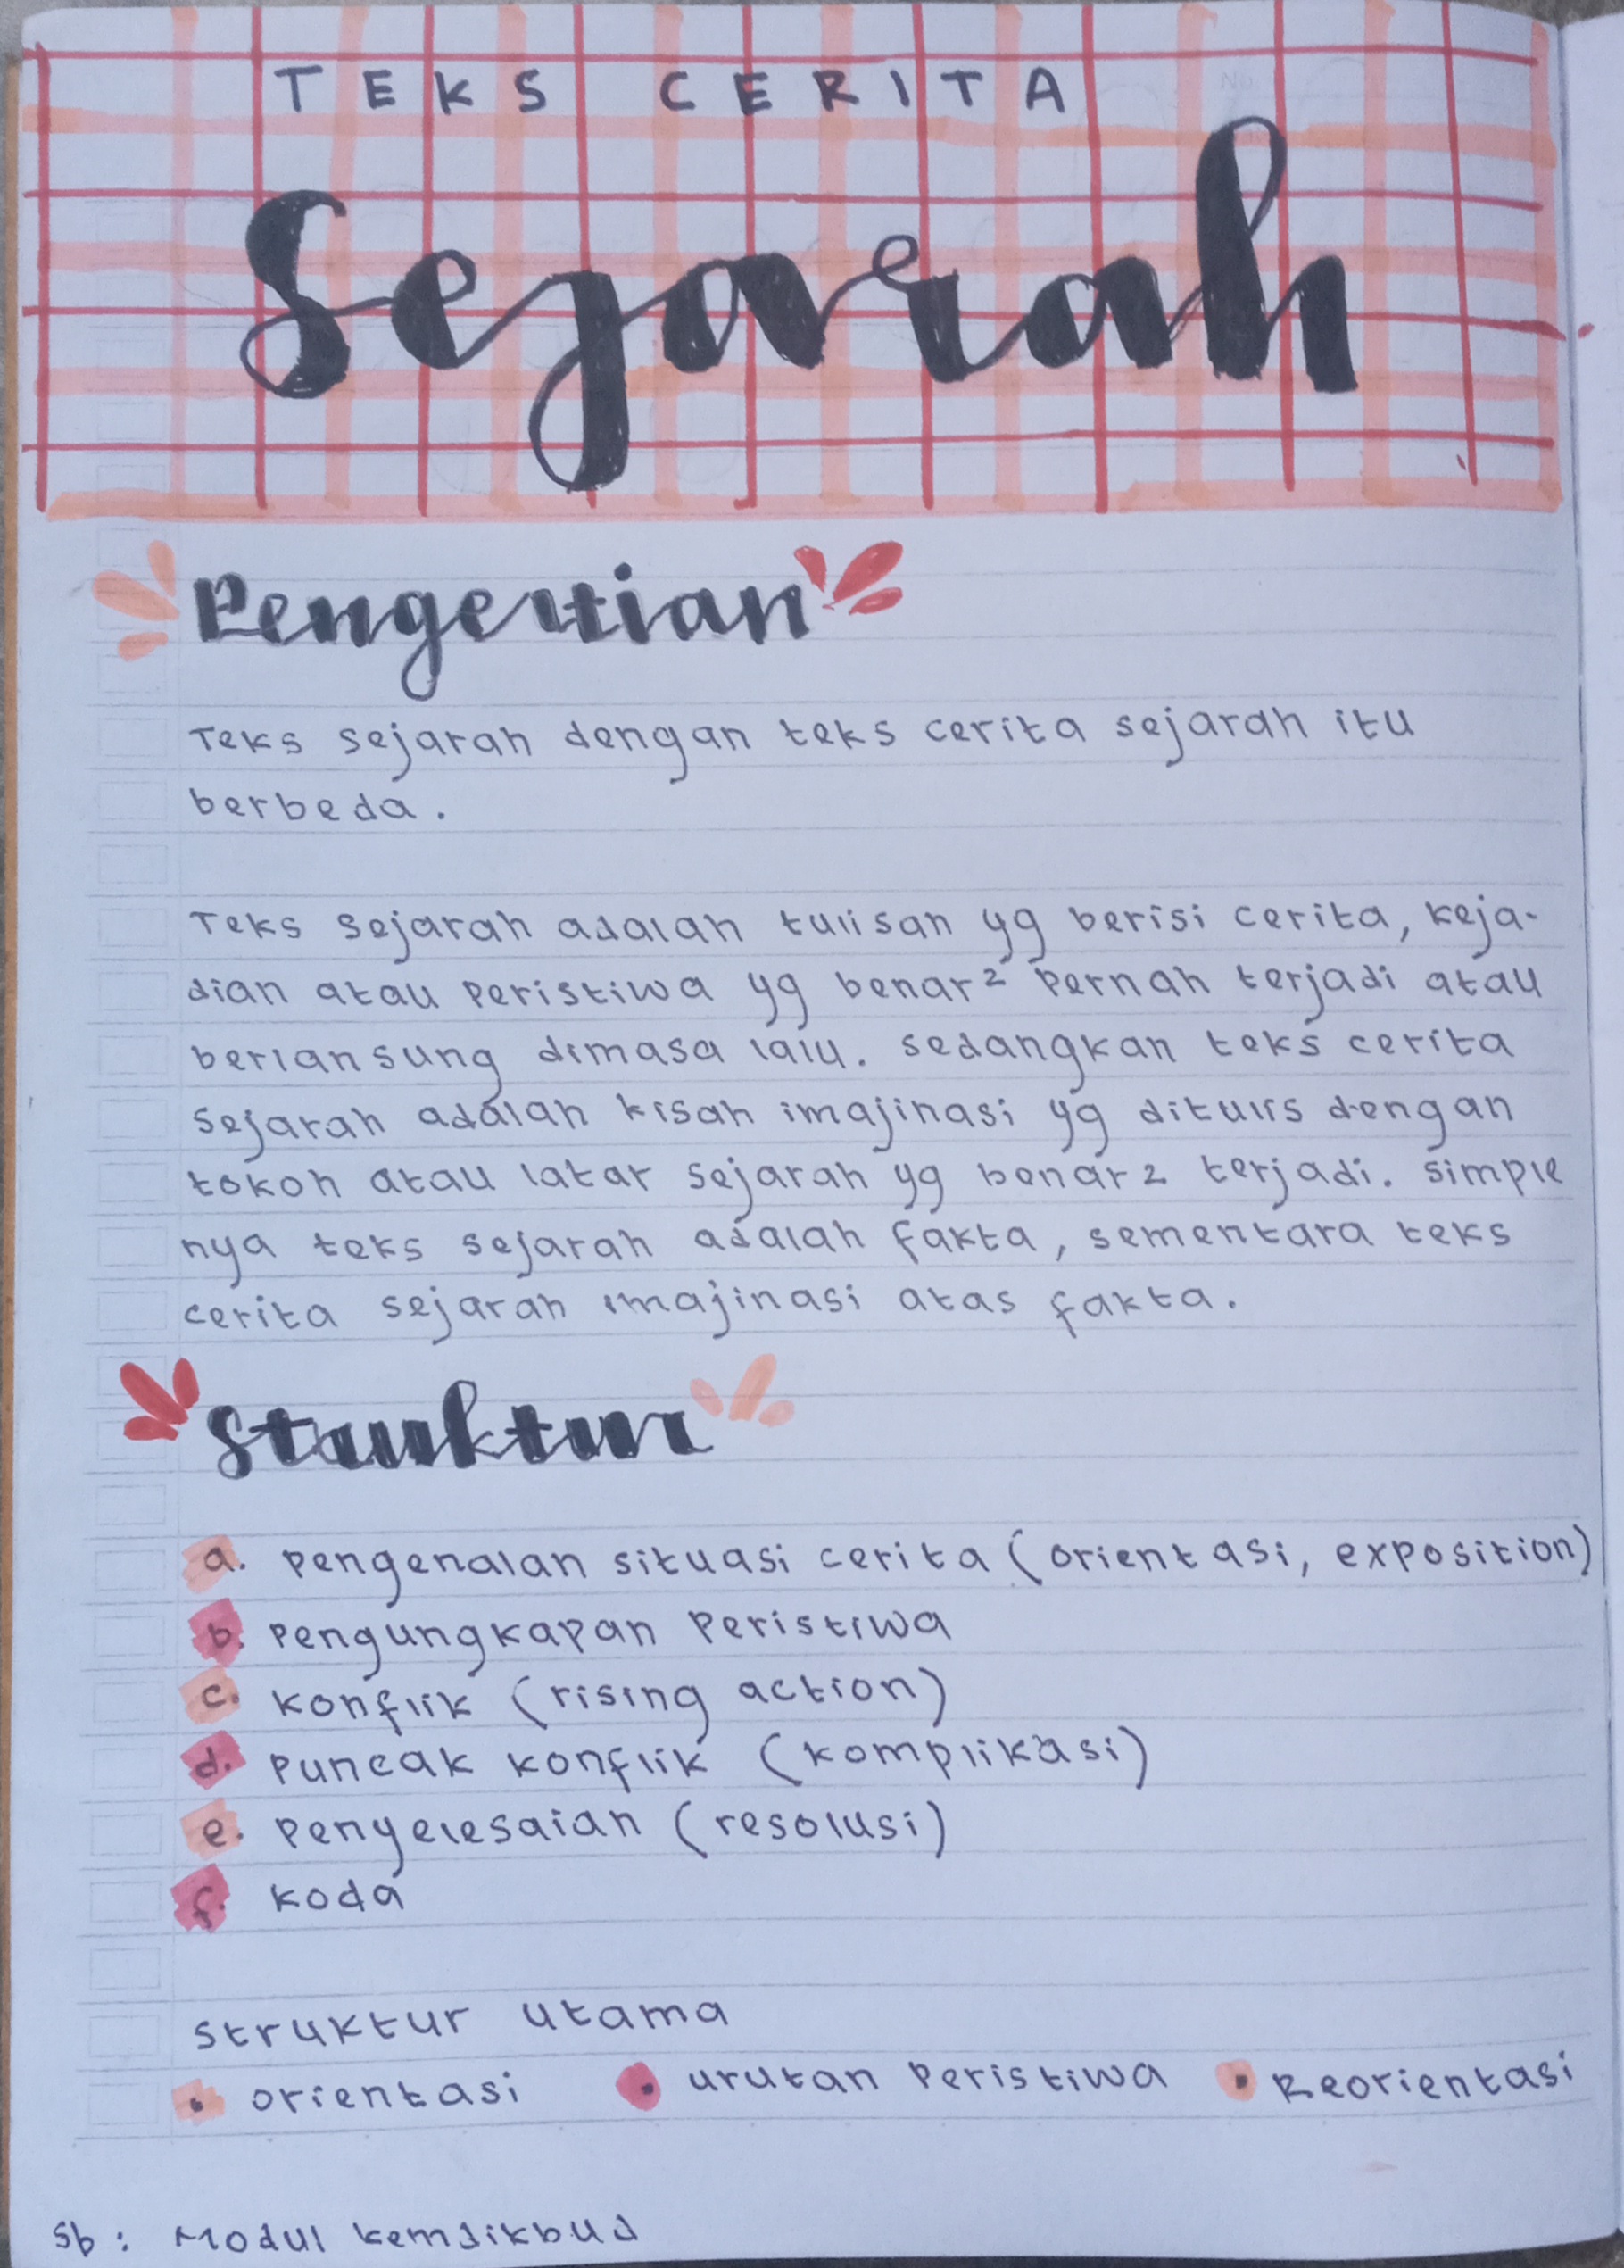 TEKS CERITA
Sejarah
Pengertian
Teks sejarah dengan teks cerita sejarah itu
berbeda.
Teks sejarah adalah tulisan yg berisi cerita, keja-
dian atau peristiwa yg benar² pernah terjadi atau
berlansung dimasa lalu. sedangkan teks cerita
sejarah adalah kisah imajinasi yg ditulis dengan
tokoh atau latar sejarah yg benar2 terjadi. simple
nya teks sejarah adalah fakta, sementara teks
cerita sejarah imajinasi atas fakta.
Struktur
a. pengenalan situasi cerita (orientasi, exposition)
b. pengungkapan peristiwa
c. konflik (rising action)
d. puncak konflik (komplikasi)
e. penyelesaian (resolusi)
f. koda
struktur utama
• orientasi • urutan peristiwa • Reorientasi
Sb : Modul kemdikbud